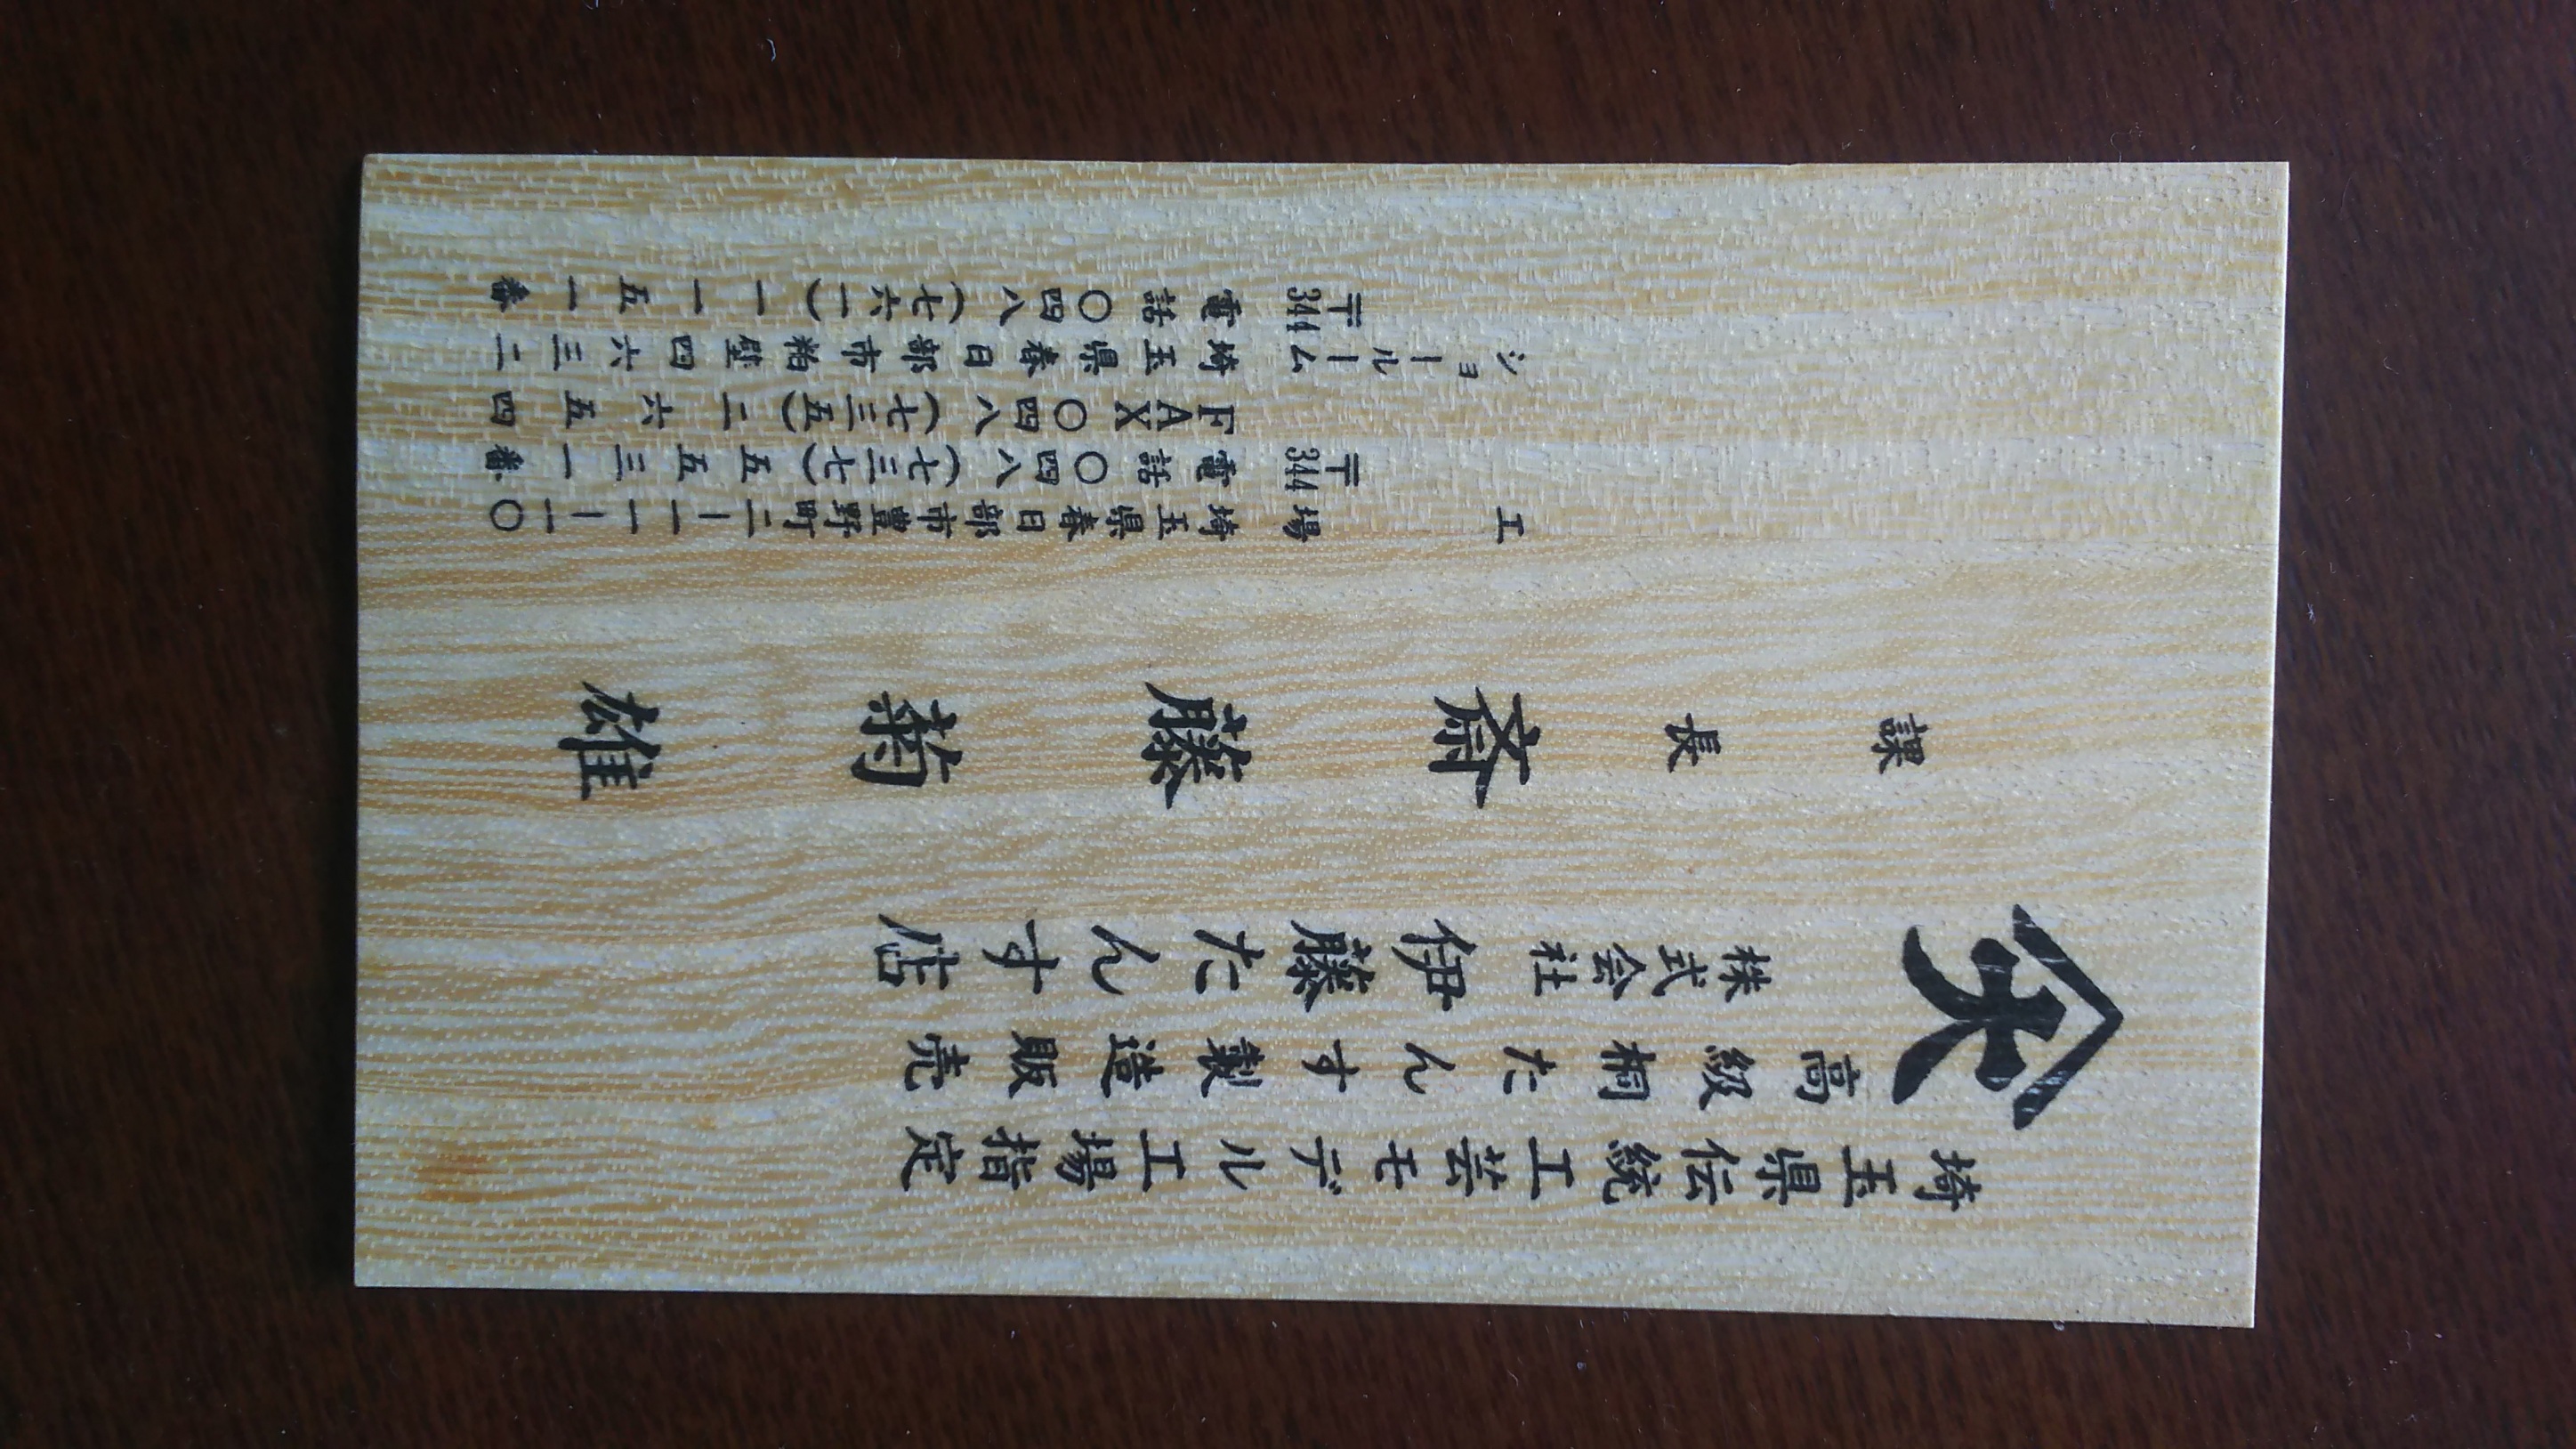 埼玉県伝統工芸モデル工場指定
高級桐たんす製造販売
株式会社 伊藤たんす店
課長 斎藤菊雄
工場 埼玉県春日部市豊野町二ー一一ー一〇
〒344 電話 〇四八(七三七)五五三一番
FAX 〇四八(七三五)二六五四
ショールーム 埼玉県春日部市粕壁四六三二
〒344 電話 〇四八(七六一)一一五一番